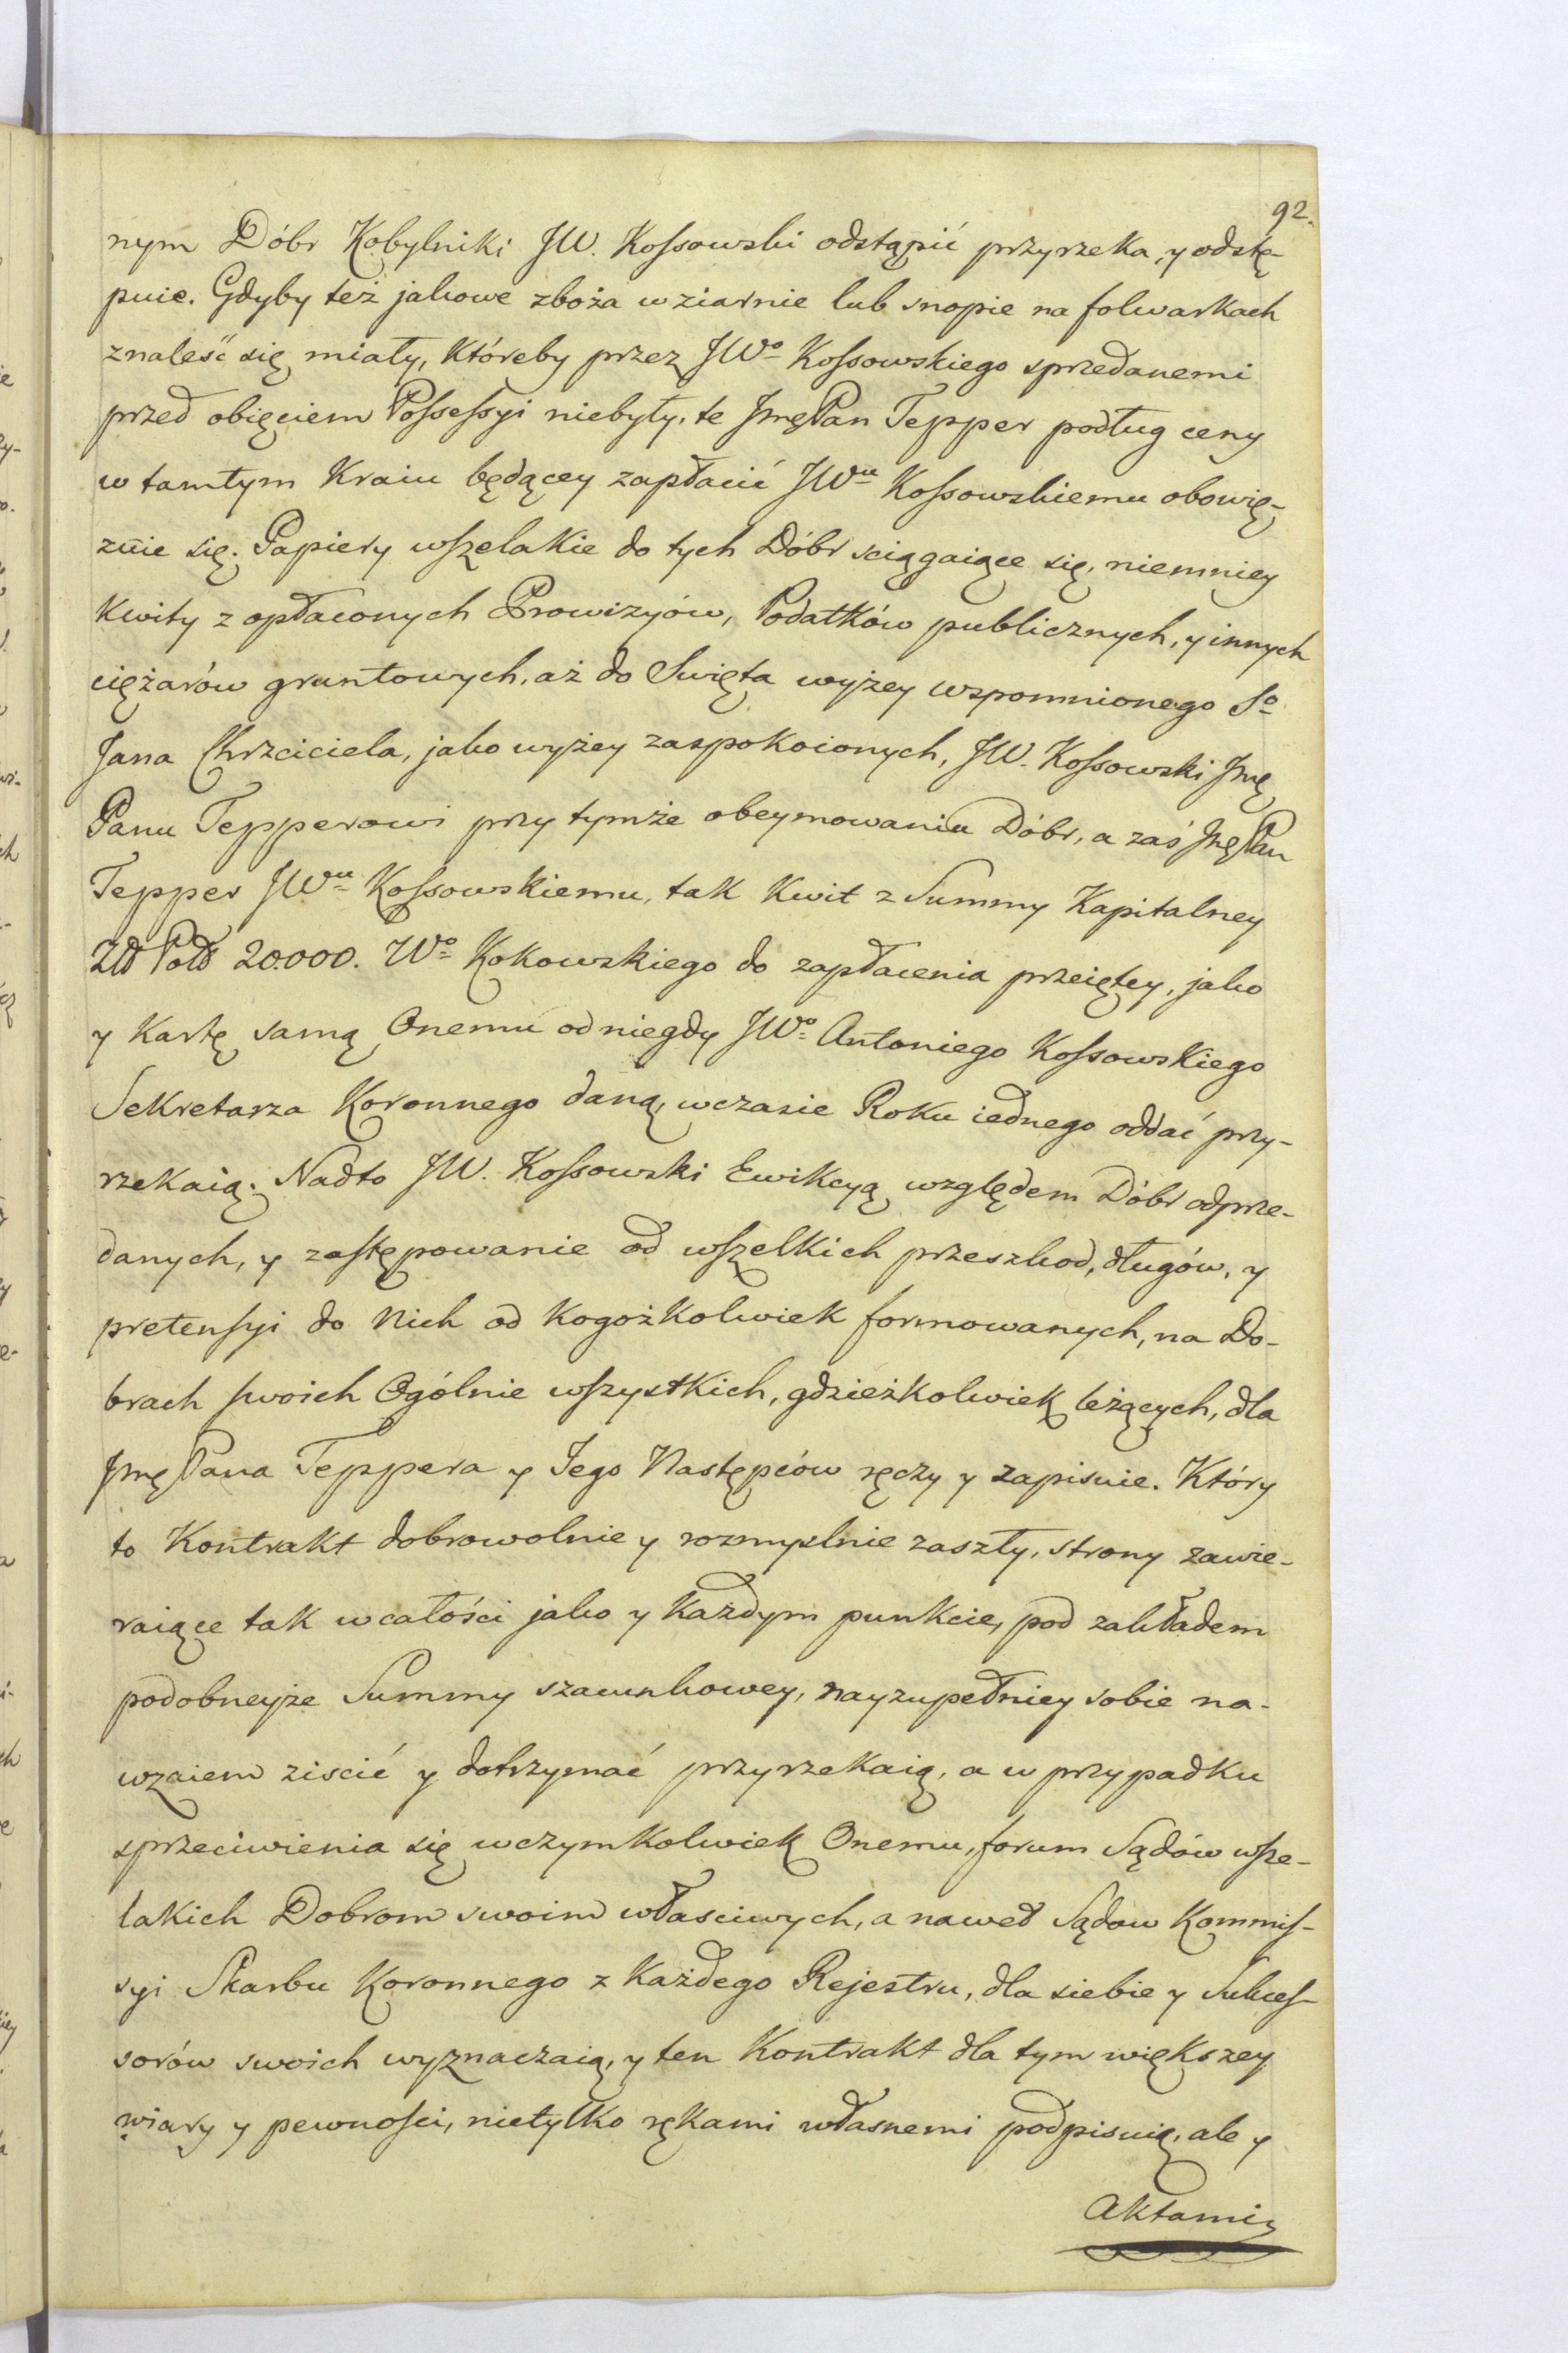 92.
nym Dóbr Kobylniki JW. Kossowski odstąpić przyrzeka, y odstę-
puie. Gdyby też jakowe zboża w ziarnie lub snopie na folwarkach
znaleść się miały, któreby przez JWo Kossowskiego sprzedanemi
przed obięciem Possessyi niebyły, te Jmę Pan Tepper podług ceny
w tamtym Kraiu będącey zapłacić JWu Kossowskiemu obowię-
zuie się. Papiery wszelakie do tych Dóbr sciągaiące się, niemniey
Kwity z opłaconych Prowizyów, Podatków publicznych, y innych
ciężarów gruntowych, aż do Swięta wyżey wspomnionego So
Jana Chrzciciela, jako wyżey zaspokoionych, JW. Kossowski Jmę
Panu Tepperowi przy tymże obeymowaniu Dóbr, a zaś Jmę Pan
Tepper JWu Kossowskiemu, tak Kwit z Summy Kapitalney
Zł Pol 20.000. Wo Kokowskiego do zapłacenia przeiętey, jako
y Kartę samą Onemu od niegdy JWo Antoniego Kossowskiego
Sekretarza Koronnego daną, w czasie Roku iednego oddać przy-
rzekaią. Nadto JW. Kossowski Ewikcyą względem Dóbr odprze-
danych, y zastępowanie od wszelkich przeszkod, długów, y
pretensyi do Nich od Kogożkolwiek formowanych, na Do-
brach swoich Ogólnie wszystkich, gdzieżkolwiek leżących, dla
Jmę Pana Teppera y Jego Następców ręczy y zapisuie. Który
to Kontrakt dobrowolnie y rozmyslnie zaszły, strony zawie-
raiące tak w całości jako y Każdym punkcie, pod zakładem
podobneyże Summy szacunkowey, nayzupełniey sobie na-
wzaiem ziscić y dotrzymać przyrzekaią, a w przypadku
sprzeciwienia się w czymkolwiek Onemu, forum Sądów wsze-
lakich Dobrom swoim własciwych, a nawet Sądow Kommis-
syi Skarbu Koronnego z Każdego Rejestru, dla siebie y Sukces-
sorów swoich wyznaczaią, y ten Kontrakt dla tym większey
wiary y pewności, nietylko rękami własnemi podpisuią, ale y
Aktami